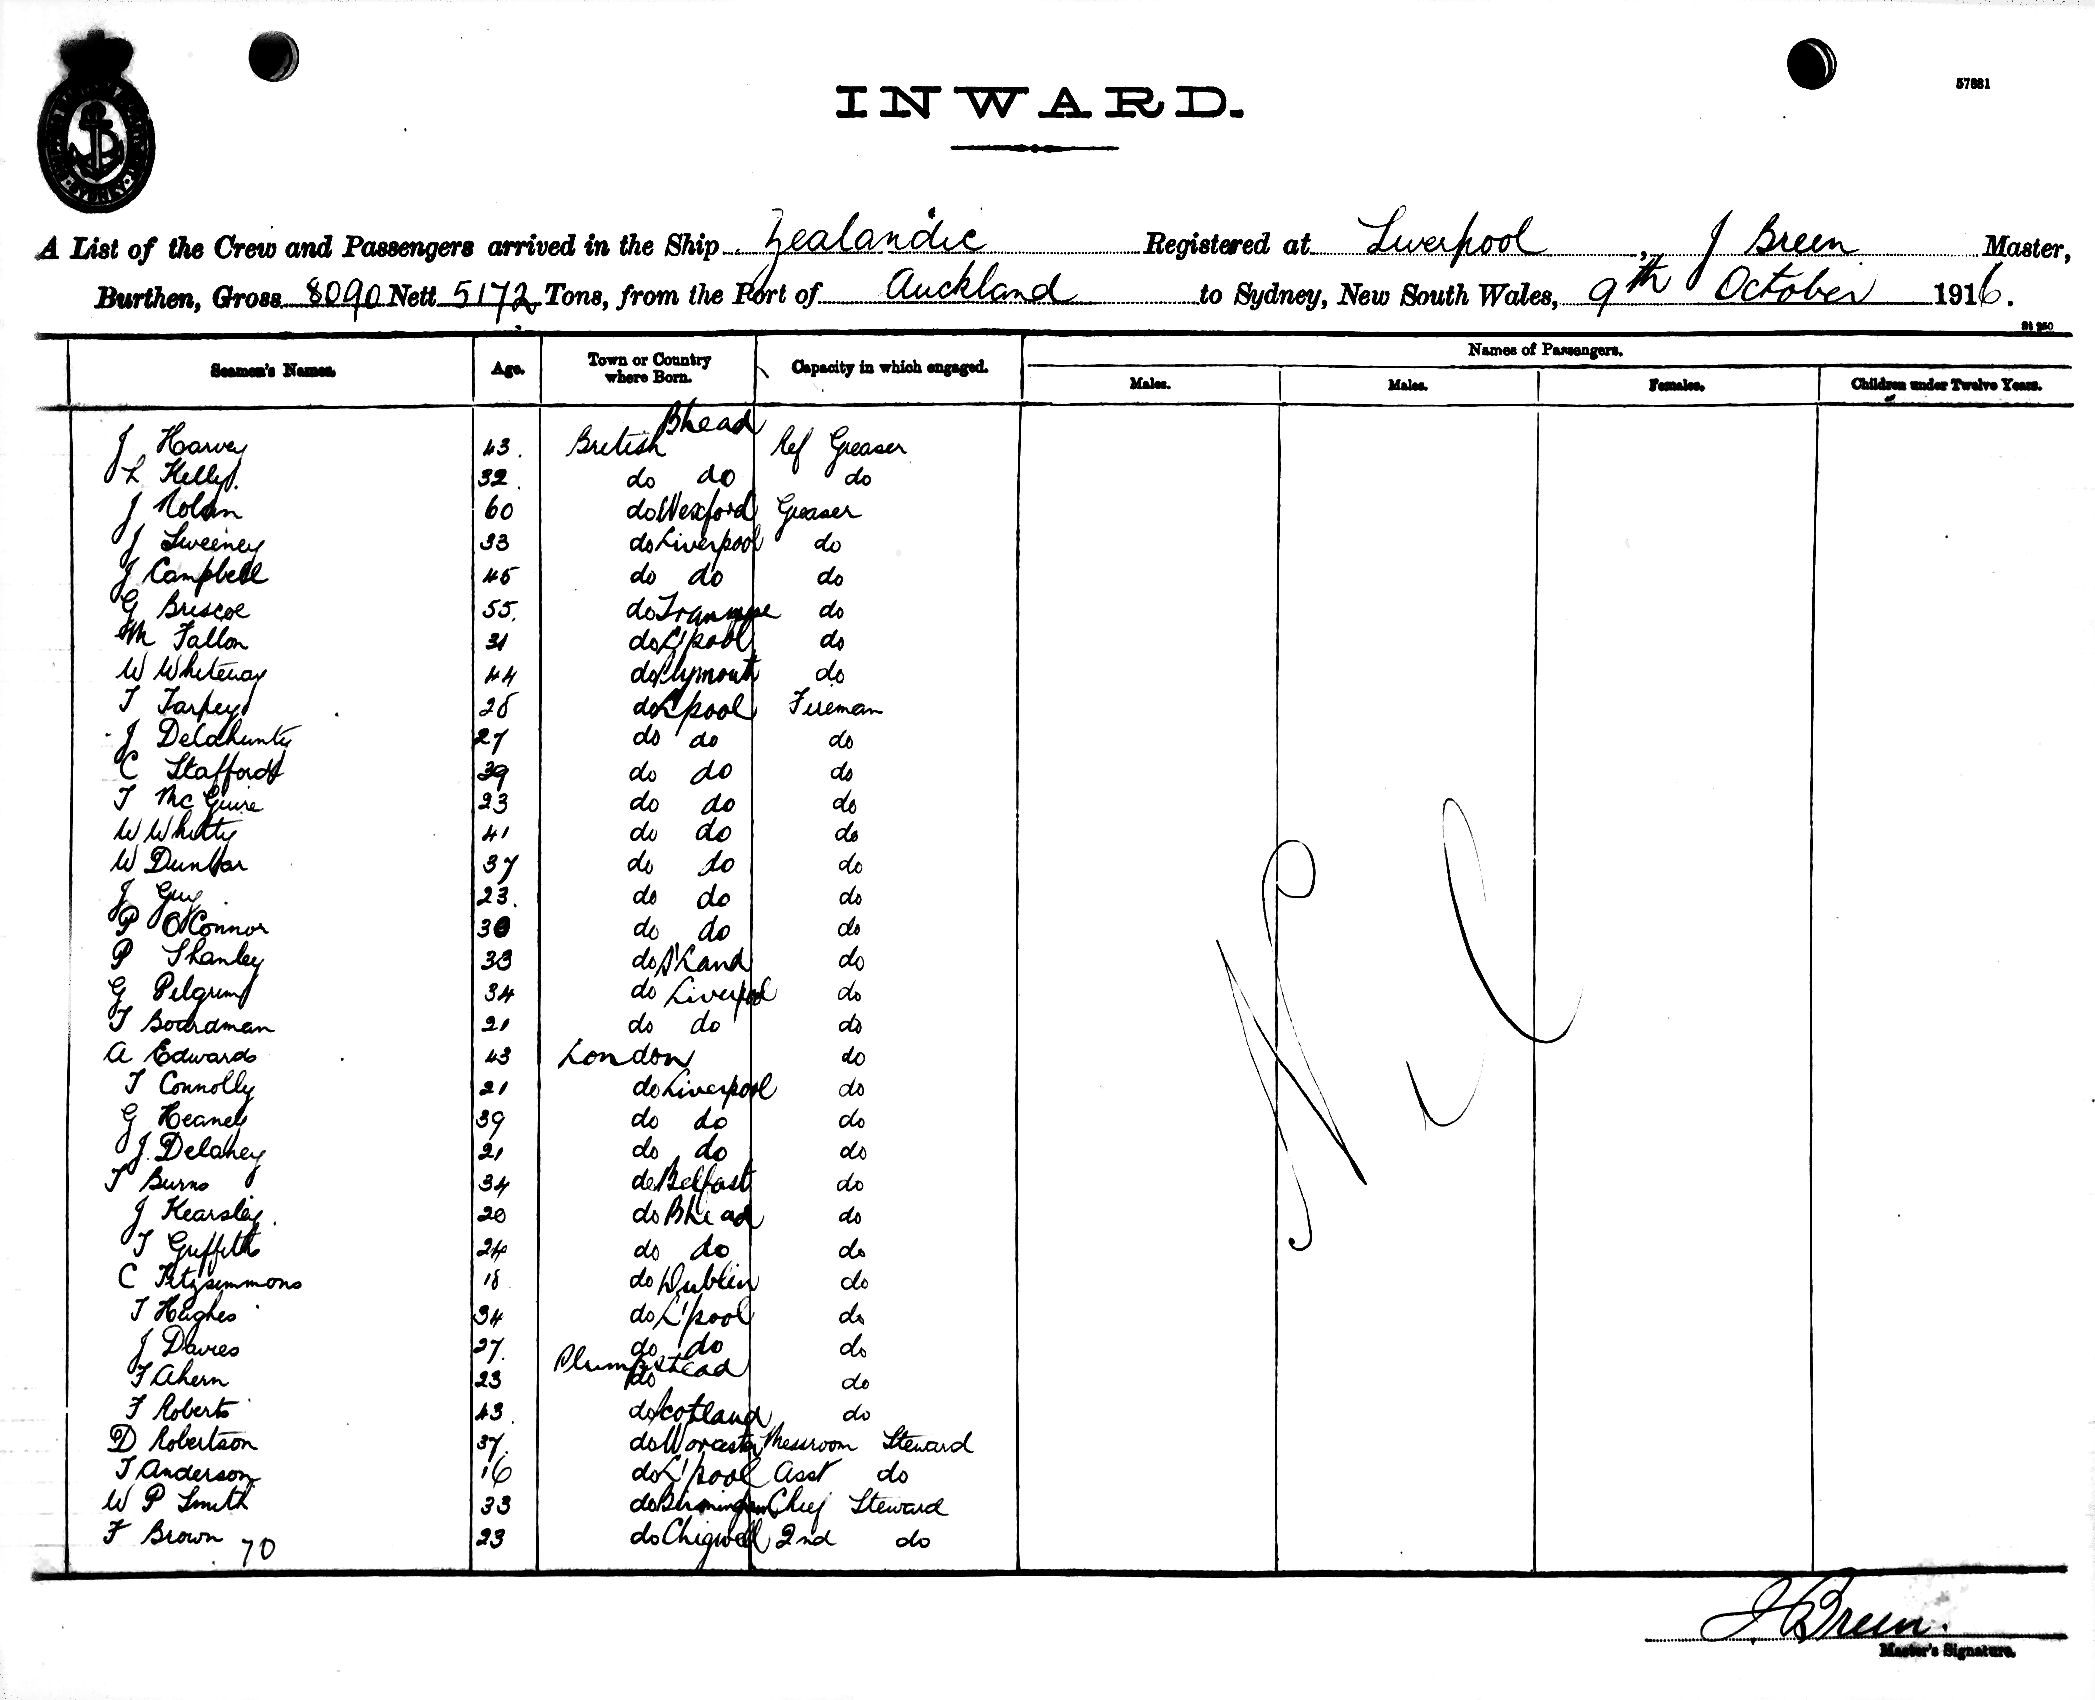 57881
INWARD.
A List of the Crew and Passengers arrived in the Ship Zealandic Registered at Liverpool, J Breen Master,
Burthen, Gross 8090 Nett 5172 Tons, from the Port of Auckland to Sydney, New South Wales, 9th October 1916.
Seamen's Names. Age. Town or Country where Born. Capacity in which engaged. Names of Passengers.
Males. Males. Females. Children under Twelve Years.
J Harvey 43. British Bhead Ref Greaser
L Kelly. 32. do do do
J Nolan 60 do Wexford Greaser
J Sweeney 33 do Liverpool do
J Campbell 45 do do do
G Briscoe 55. do Tranmere do
M Fallon 31 do L'pool do
W Whiteway 44 do Plymouth do
T Tarpey 28 do L'pool Fireman
J Delahunty 27 do do do
C Stafford 39 do do do
T McGuire 23 do do do
W Whitty 41 do do do
W Dunbar 37 do do do
J Guy 23. do do do
P O'Connor 30 do do do
P Shanley 33 do do
G Pilgrim 34 do Liverpool do
T Boardman 21 do do do
A Edwards 43 London do
T Connolly 21 do Liverpool do
G Heaney 39 do do do
J. Delaney 21 do do do
T Burns 34 do Belfast do
J Kearsley. 20 do Bhead do
T Griffiths 24 do do do
C Fitzsimmons 18 do Dublin do
T Hughes 34 do L'pool do
J Davies 27. do do do
T Ahern 23 Plumpstead do do
F Roberts 43. do Scotland do
D Robertson 37. do Worcester Messroom Steward
T Anderson 16 do L'pool Asst do
W P Smith 33 do Birmingham Chief Steward
F Brown 23 do Chigwell 2nd do
70
Nil
J Breen.
Master's Signature.